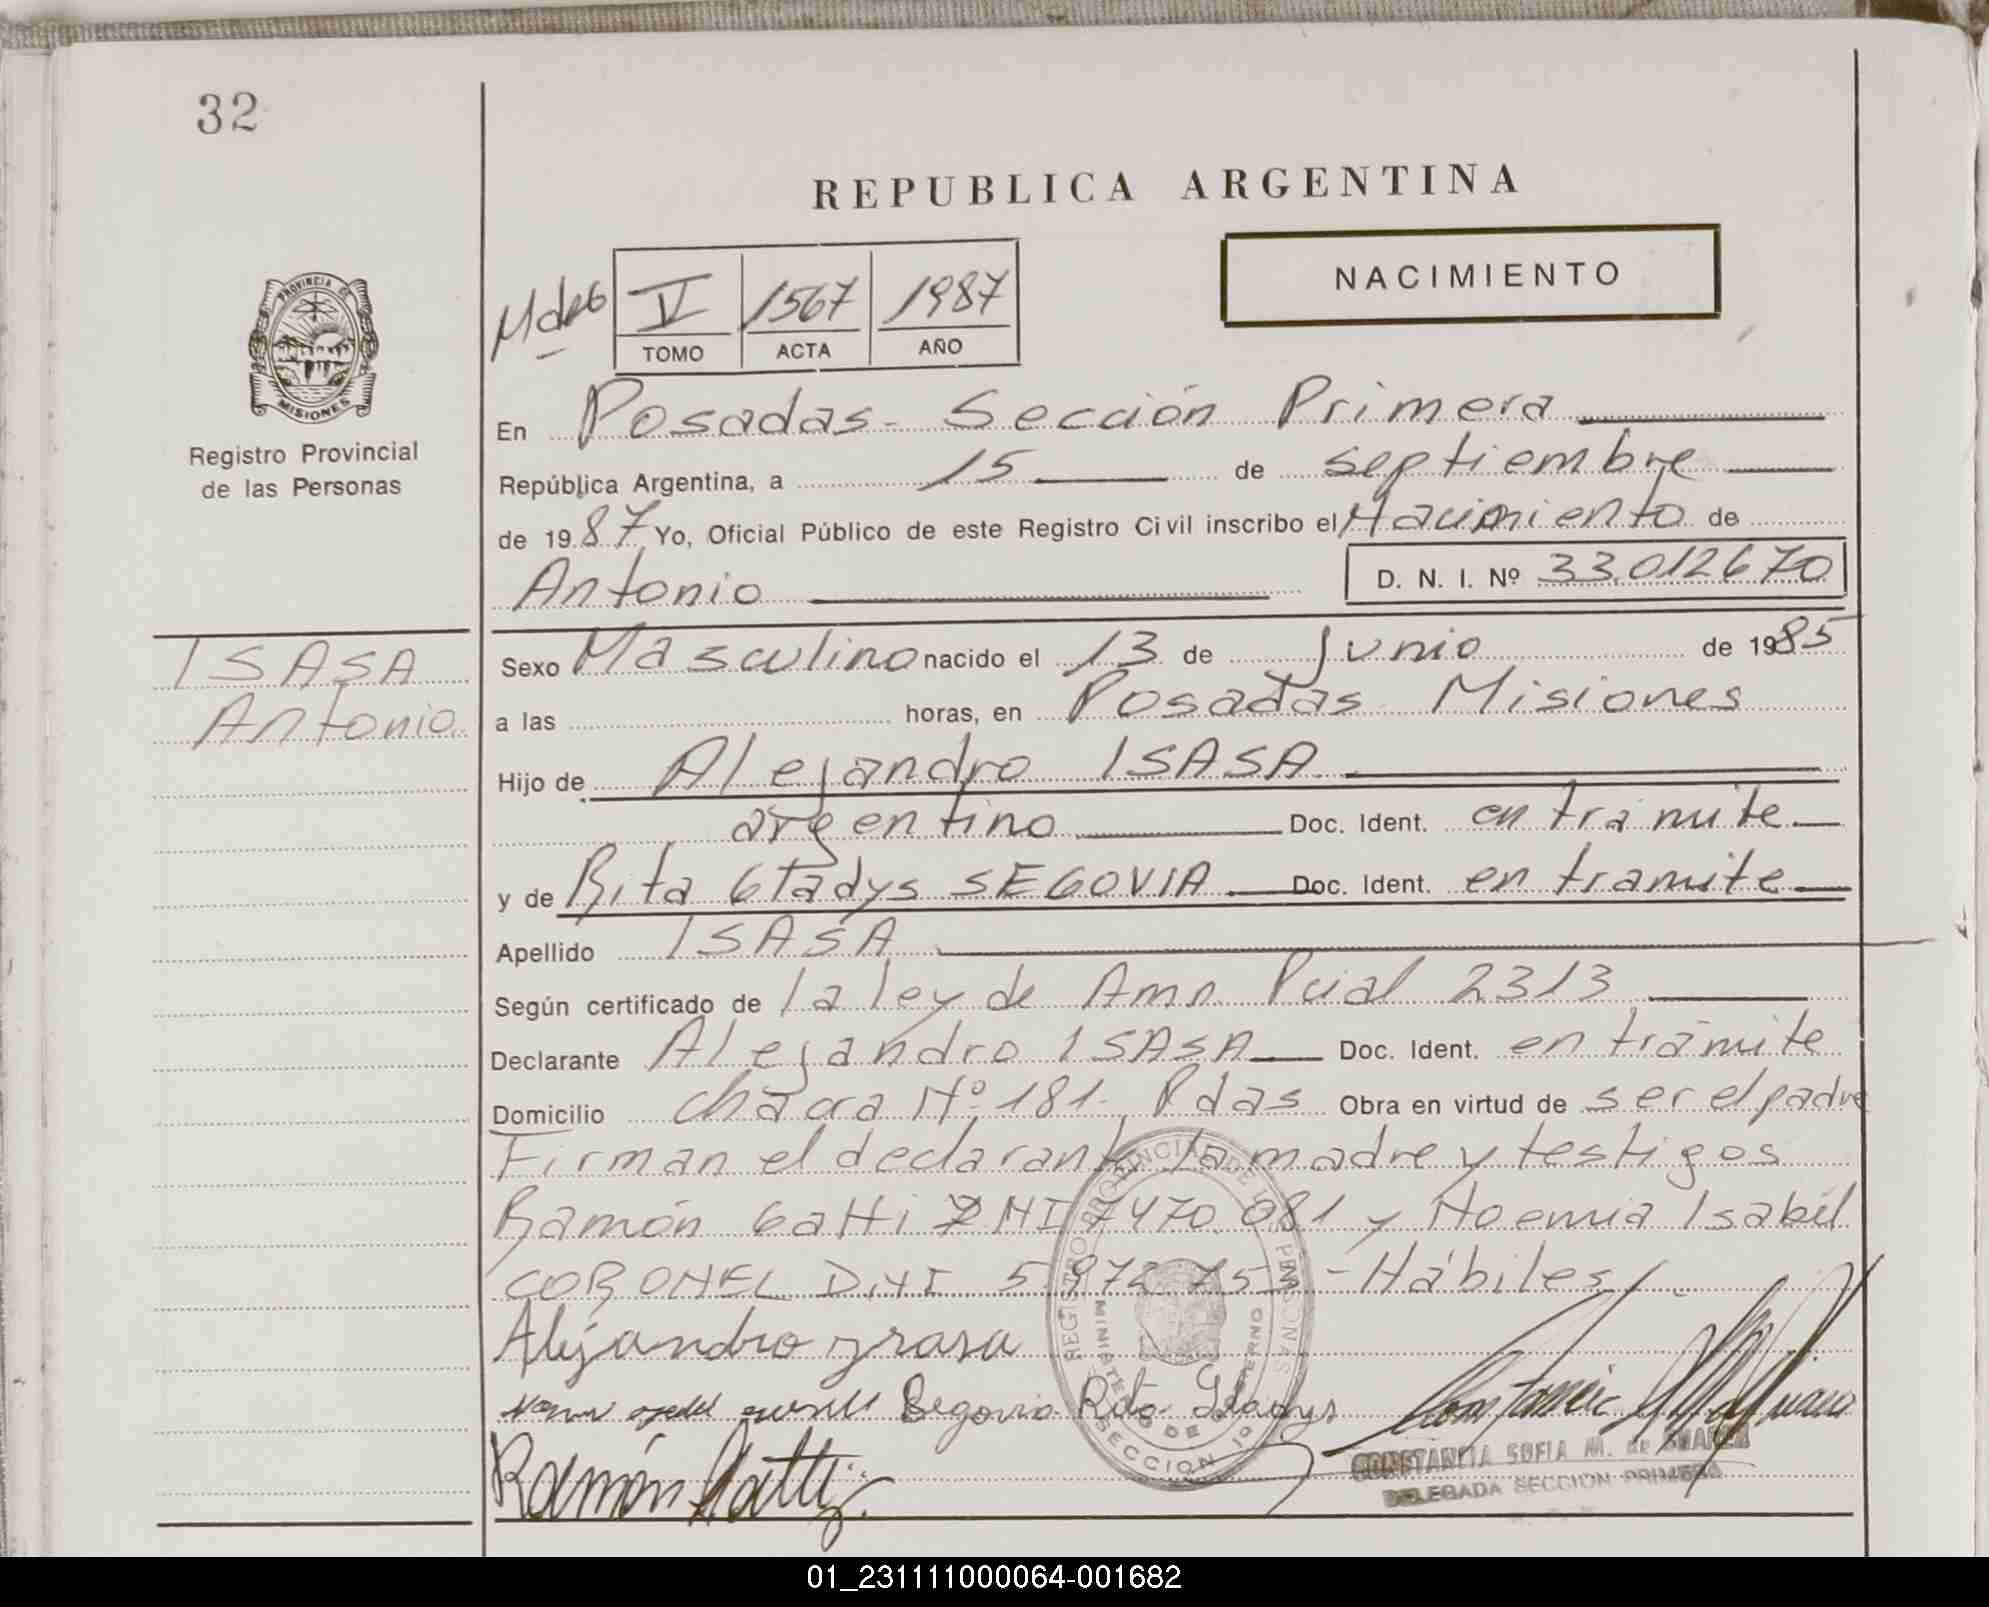 32
REPUBLICA ARGENTINA
NACIMIENTO
V 1567 1987
TOMO ACTA AÑO
PROVINCIA DE
MISIONES
Registro Provincial
de las Personas
En Posadas - Sección Primera
República Argentina, a 15 de septiembre
de 1987 Yo, Oficial Público de este Registro Civil inscribo el Nacimiento de
Antonio D. N. I. Nº 33.012670
ISASA
Antonio
Sexo Masculino nacido el 13 de Junio de 1985
a las horas, en Posadas Misiones
Hijo de Alejandro ISASA
argentino Doc. Ident. en trámite
y de Rita Gladys SEGOVIA Doc. Ident. en tramite
Apellido ISASA
Según certificado de la ley de Amn. Pcial 2313
Declarante Alejandro ISASA Doc. Ident. en trámite
Domicilio chacra Nº 181. Pdas Obra en virtud de ser el padre
Firman el declarante la madre y testigos
Ramón Gatti DNI 7470.081 y Noemia Isabel
CORONEL D.N.I 5.972.75 - Hábiles
Alejandro Isasa
Segovia Rita Gladys
Ramón Gatti
REGISTRO PROVINCIAL DE LAS PERSONAS
MINISTERIO DE GOBIERNO
SECCION 1º
CONSTANCIA SOFIA M. de
DELEGADA SECCION PRIMERA
01_231111000064-001682